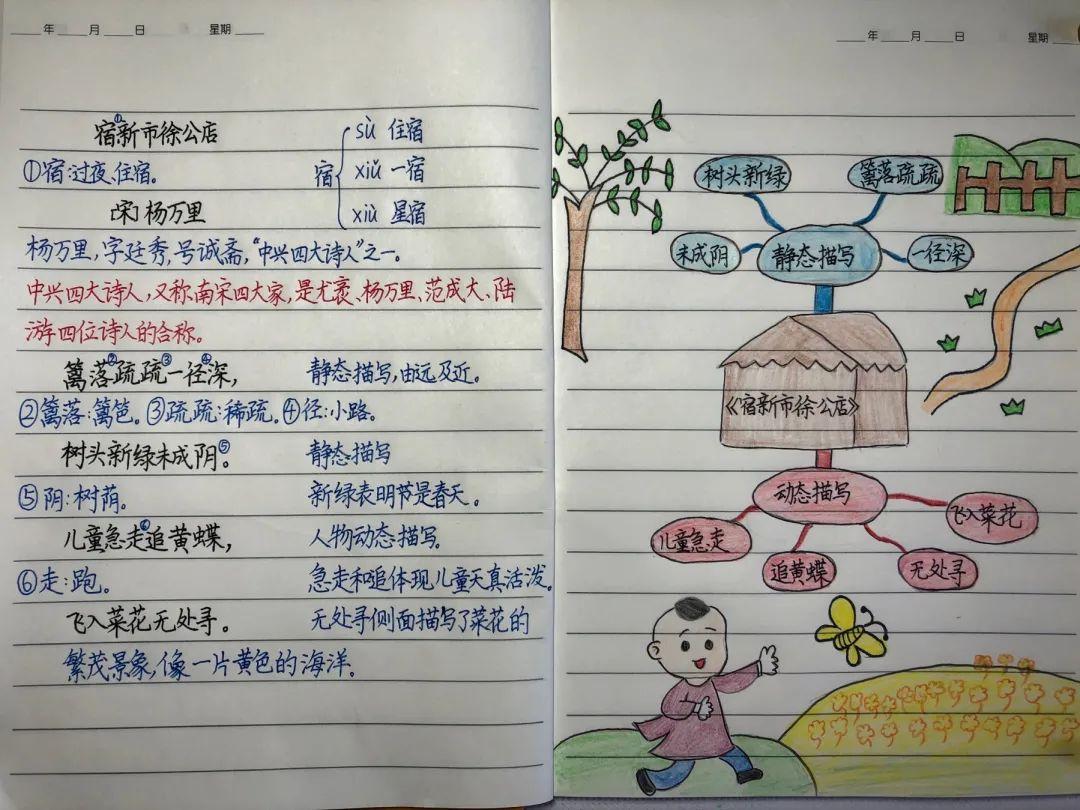 年 月 日 星期
宿①新市徐公店
①宿:过夜、住宿。
[宋]杨万里
宿 sù 住宿
xiǔ 一宿
xiù 星宿
杨万里,字廷秀,号诚斋,“中兴四大诗人”之一。
中兴四大诗人,又称南宋四大家,是尤袤、杨万里、范成大、陆
游四位诗人的合称。
篱落②疏疏③一径④深, 静态描写,由远及近。
②篱落:篱笆。③疏疏:稀疏。④径:小路。
树头新绿未成阴⑤。 静态描写
⑤阴:树荫。 新绿表明节是春天。
儿童急走⑥追黄蝶, 人物动态描写。
⑥走:跑。 急走和追体现儿童天真活泼。
飞入菜花无处寻。 无处寻侧面描写了菜花的
繁茂景象,像一片黄色的海洋。
年 月 日 星期
树头新绿 篱落疏疏
未成阴 静态描写 一径深
《宿新市徐公店》
动态描写
飞入菜花
儿童急走
追黄蝶 无处寻